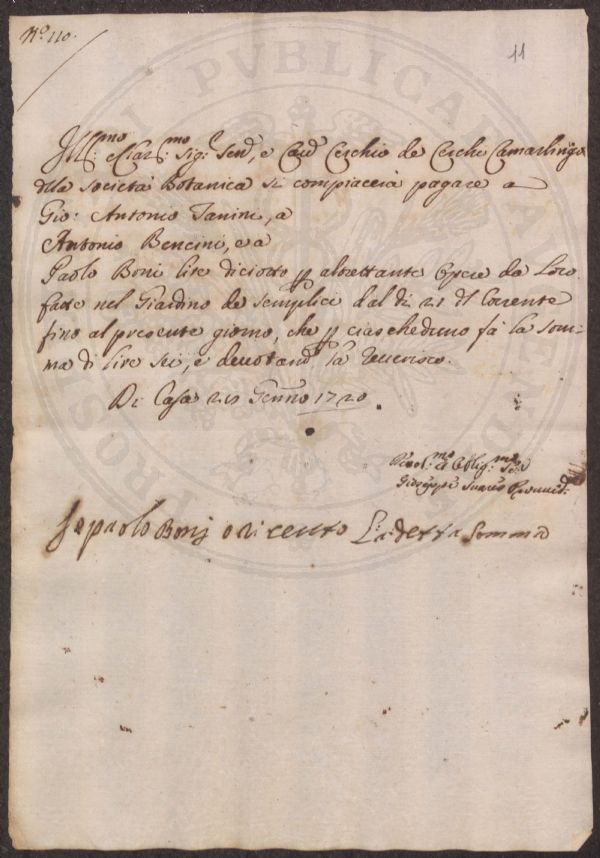 N.º 110.
11
Ill:mo e Clar:mo Sig:r Send, e Cav Cerchio de Cerchi Camarlingo
della Società Botanica si compiacerà pagare a
Gio: Antonio Tanini, a
Antonio Bencini, e a
Paolo Boni lire diciotto p altrettante Opere da Loro
fatte nel Giardino de Semplici dal di 21 del Corrente
fino al presente giorno, che p ciascheduno fà la som-
ma di lire sei, e devotam la reverisco.
Di Casa 29 Genno 1720
Devot:mo et Obblig:mo Ser
Giuseppe
Io paolo Bonj o riceuto L:a detta Somma
PVBLICAE